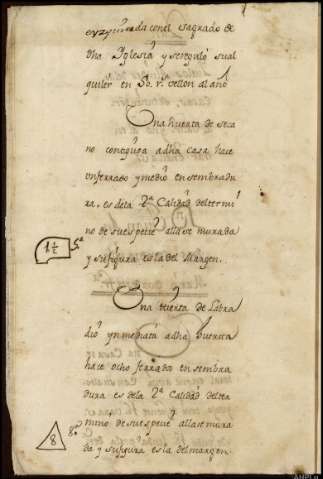 con el sagrado de
dha Yglesia y se reguló su al
quiler en 50 r.s vellon al año
Una huerta de seca
no contigura a dha casa hace
un ferrado y medio en sembradu
ra, es de la 2.a Calidad del termi
no de su especie allase murada
y su figura es la del Margen.
1 f.
Una huerta de Labra
dio ynmediata a dha huerta
hace ocho ferrado en sembra
dura es de la 2.a Calidad del ter
mino de su especie allase mura
da y su figura es la del margen.
8
8.